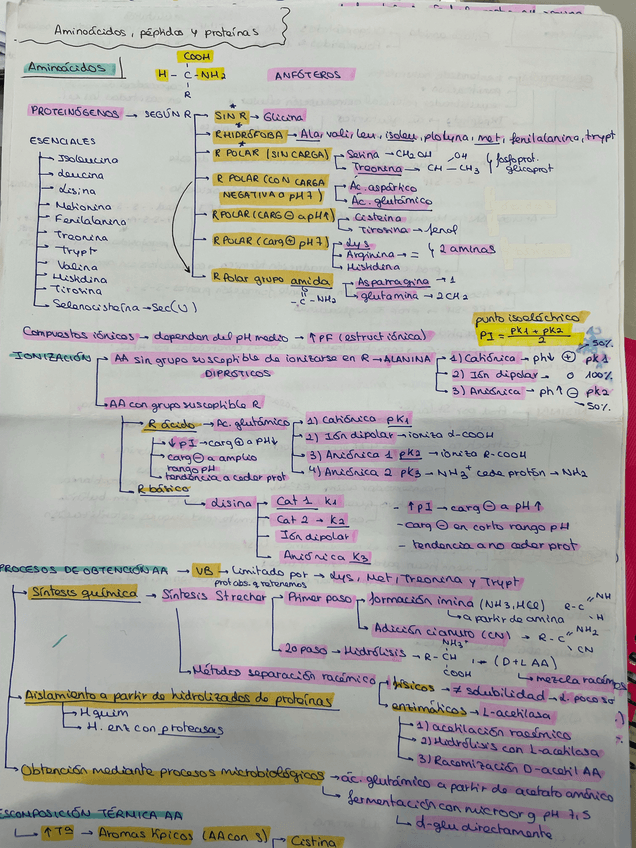 Aminoácidos, péptidos y proteínas
Aminoácidos
COOH
H - C - NH2
R
ANFÓTEROS
PROTEINÓGENOS → SEGÚN R
SIN R → Glicina
R HIDRÓFOBA → Ala, val, leu, isoleu, prolyna, met, fenilalanina, trypt
R POLAR (SIN CARGA)
Serina → CH2OH
Treonina → CH - CH3
OH
fosfoprot.
glicoprot
R POLAR (CON CARGA
NEGATIVA a pH7)
Ác. aspártico
Ac. glutámico
R POLAR (CARG ⊖ a pH↑)
Cisteína
Tirosina → fenol
R POLAR (carg ⊕ pH 7)
Lys
Arginina → =
Histidina
2 aminas
R Polar grupo amida
O
-C-NH2
Asparragina → 1
glutamina → 2CH2
ESENCIALES
Isoleucina
Leucina
Lisina
Metionina
Fenilalanina
Treonina
Trypt
Valina
Histidina
Tirosina
Selanocisteína → Sec(U)
punto isoeléctrico
PI = pK1 + pK2
2
Compuestos iónicos → dependen del pH medio → ↑PF (estruct iónica)
IONIZACIÓN
AA sin grupo susceptible de ionizarse en R → ALANINA
DIPRÓTICOS
50%
1) Catiónica → pH↓ ⊕ pK1
2) Ión dipolar → 0 100%
3) Aniónica → pH ↑ ⊖ pK2
50%
AA con grupo susceptible R
R ácido → Ac. glutámico
↓PI → carg ⊕ a pH↓
carg ⊖ a amplio
rango pH
tendencia a ceder prot
1) Catiónica pK1
2) Ión dipolar → ioniza α-COOH
3) Aniónica 1 pK2 → ioniza R-COOH
4) Aniónica 2 pK3 → NH3+ cede protón → NH2
R básico
Lisina
Cat 1 K1
Cat 2 → K2
Ión dipolar
Aniónica K3
- ↑PI → carg ⊖ a pH ↑
- carg ⊖ en corto rango pH
- tendencia a no ceder prot
PROCESOS DE OBTENCIÓN AA → VB → Limitado por → Lys, Met, Treonina y Trypt
Síntesis química → Síntesis Strecher
Primer paso → formación imina (NH3, HCl) R-C NH
H
a partir de amina
Adición cianuro (CN) → R-C NH2
CN
2o paso → Hidrólisis → R-CH → (D+L AA)
NH3+
COOH
mezcla racémos
Métodos separación racémico
físicos → ≠ solubilidad → L. poco so
enzimáticos → L-acetilasa
1) acetilación racémico
2) Hidrólisis con L-acetilasa
3) Racemización D-acetil AA
Aislamiento a partir de hidrolizados de proteínas
H. quim
H. enz con proteasas
Obtención mediante procesos microbiológicos → ác. glutámico a partir de acetato amónico
fermentación con microorg pH 7,5
d-glu directamente
ESCOMPOSICIÓN TÉRMICA AA
↑Tª → Aromas típicos (AA con S)
Cistina